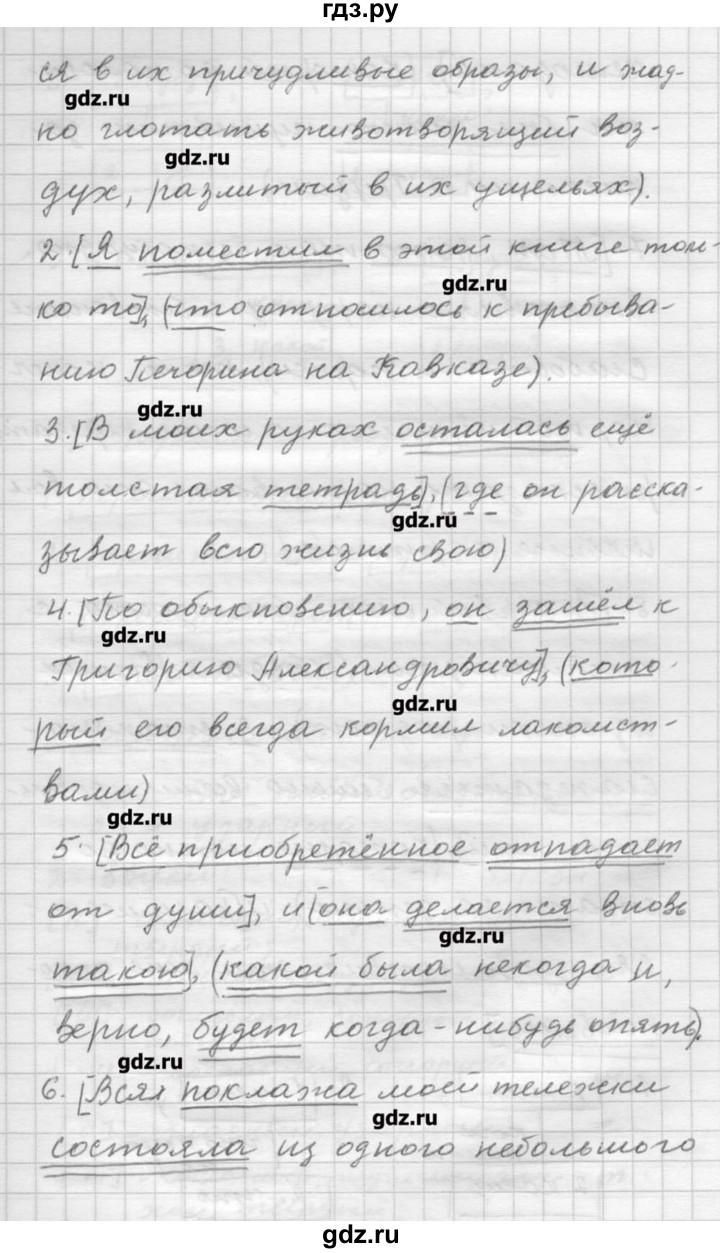 гдз.ру
ся в их причудливые образы, и жад-
gdz.ru
но глотать животворящий воз-
gdz.ru
дух, разлитый в их ущельях).
2.[Я поместил в этой книге толь-
gdz.ru
ко то], (что относилось к пребыва-
нию Печорина на Кавказе).
gdz.ru
3.[В моих руках осталась ещё
толстая тетрадь], (где он расска-
gdz.ru
зывает всю жизнь свою)
4.[По обыкновению, он зашёл к
gdz.ru
Григорию Александровичу], (кото-
gdz.ru
рый его всегда кормил лакомст-
вами)
gdz.ru
5. [Всё приобретённое отпадает
от души], и [она делается вновь
gdz.ru
такою], (какой была некогда и,
верно, будет когда-нибудь опять).
gdz.ru
6. [Вся поклажа моей тележки
gdz.ru
состояла из одного небольшого
gdz.ru